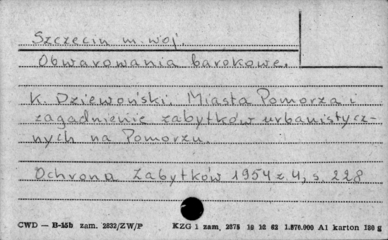 Szczecin m. woj.
Obwarowania barokowe.
K. Dziewoński. Miasta Pomorza i
zagadnienie zabytków urbanistycz-
nych na Pomorzu.
Ochrona Zabytków 1954 z. 4, s. 228
CWD — B-15b zam. 2832/ZW/P KZG 1 zam. 2375 10 10 62 1.576.000 A1 karton 186 g